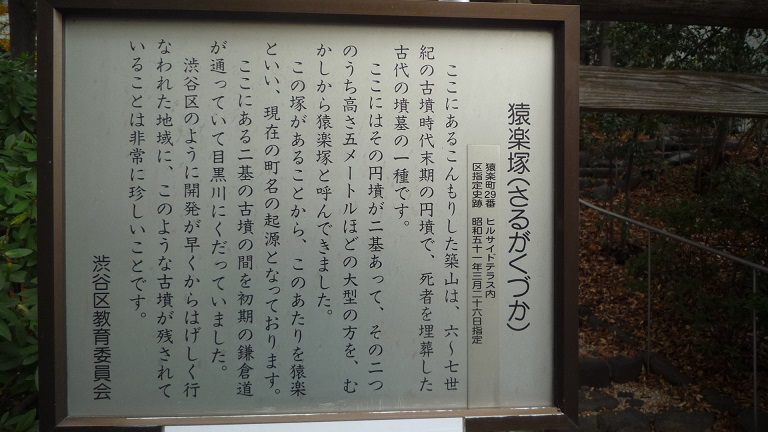 猿楽塚(さるがくづか)
猿楽町29番 ヒルサイドテラス内
区指定史跡 昭和五十一年三月二十六日指定
ここにあるこんもりした築山は、六〜七世
紀の古墳時代末期の円墳で、死者を埋葬した
古代の墳墓の一種です。
ここにはその円墳が二基あって、その二つ
のうち高さ五メートルほどの大型の方を、む
かしから猿楽塚と呼んできました。
この塚があることから、このあたりを猿楽
といい、現在の町名の起源となっております。
ここにある二基の古墳の間を初期の鎌倉道
が通っていて目黒川にくだっていました。
渋谷区のように開発が早くからはげしく行
なわれた地域に、このような古墳が残されて
いることは非常に珍しいことです。
渋谷区教育委員会